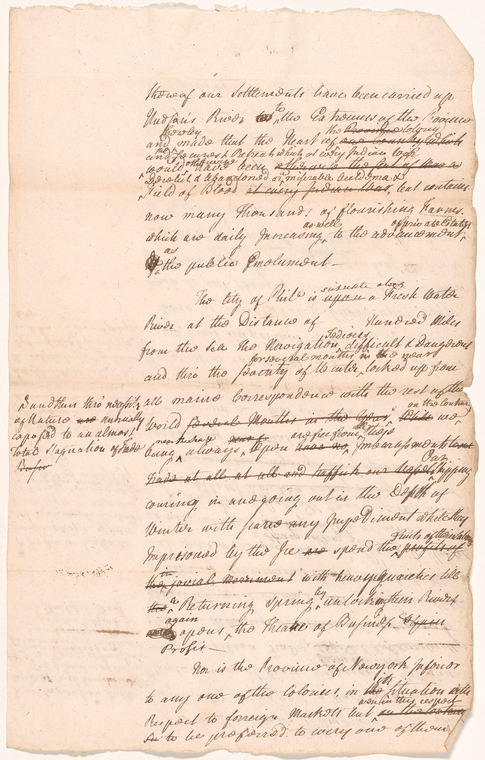 thereof our Settlements have been carried up
Hudson's River to the Extremes of the Province
thereby the Colony
and made that the Heart of
and Securest Retreat which at every Indian
would have been
a abandoned or miserable
Field of Blood at every Indian War, but contains
now many Thousands of flourishing Farms
as well of private Estates
which are daily Increasing to the advancement
as
the public Emolument
situate along
The City of Phila is upon a Fresh Water
River at the Distance of Hundred Miles
Tedious
from the Sea the Navigation difficult & dangerous
for several months in the year
and thro the Severity of Winter, locked up from
all marine Correspondence with the rest of the
on the Contrary
World several Months in the Year, while we
& and thus thro necessity
of Nature are annually
exposed to an almost
Total Stagnation of Trade
Profit
are free from those
being always open Embarassments
Our
trade at all Shipping
coming in and going out in the Depth of
Winter with scarce any Impediment while they
Imprisoned by the Ice are spend the profits of
the jovial with till
a by
the Returning Spring unlocking their Rivers
again
opens the Theatre of Business
Profit
Nor is the Province of New York inferior
its
to any one of the Colonies, in the Situation with
Respect to foreign Markets but
to be preferred to every one of them